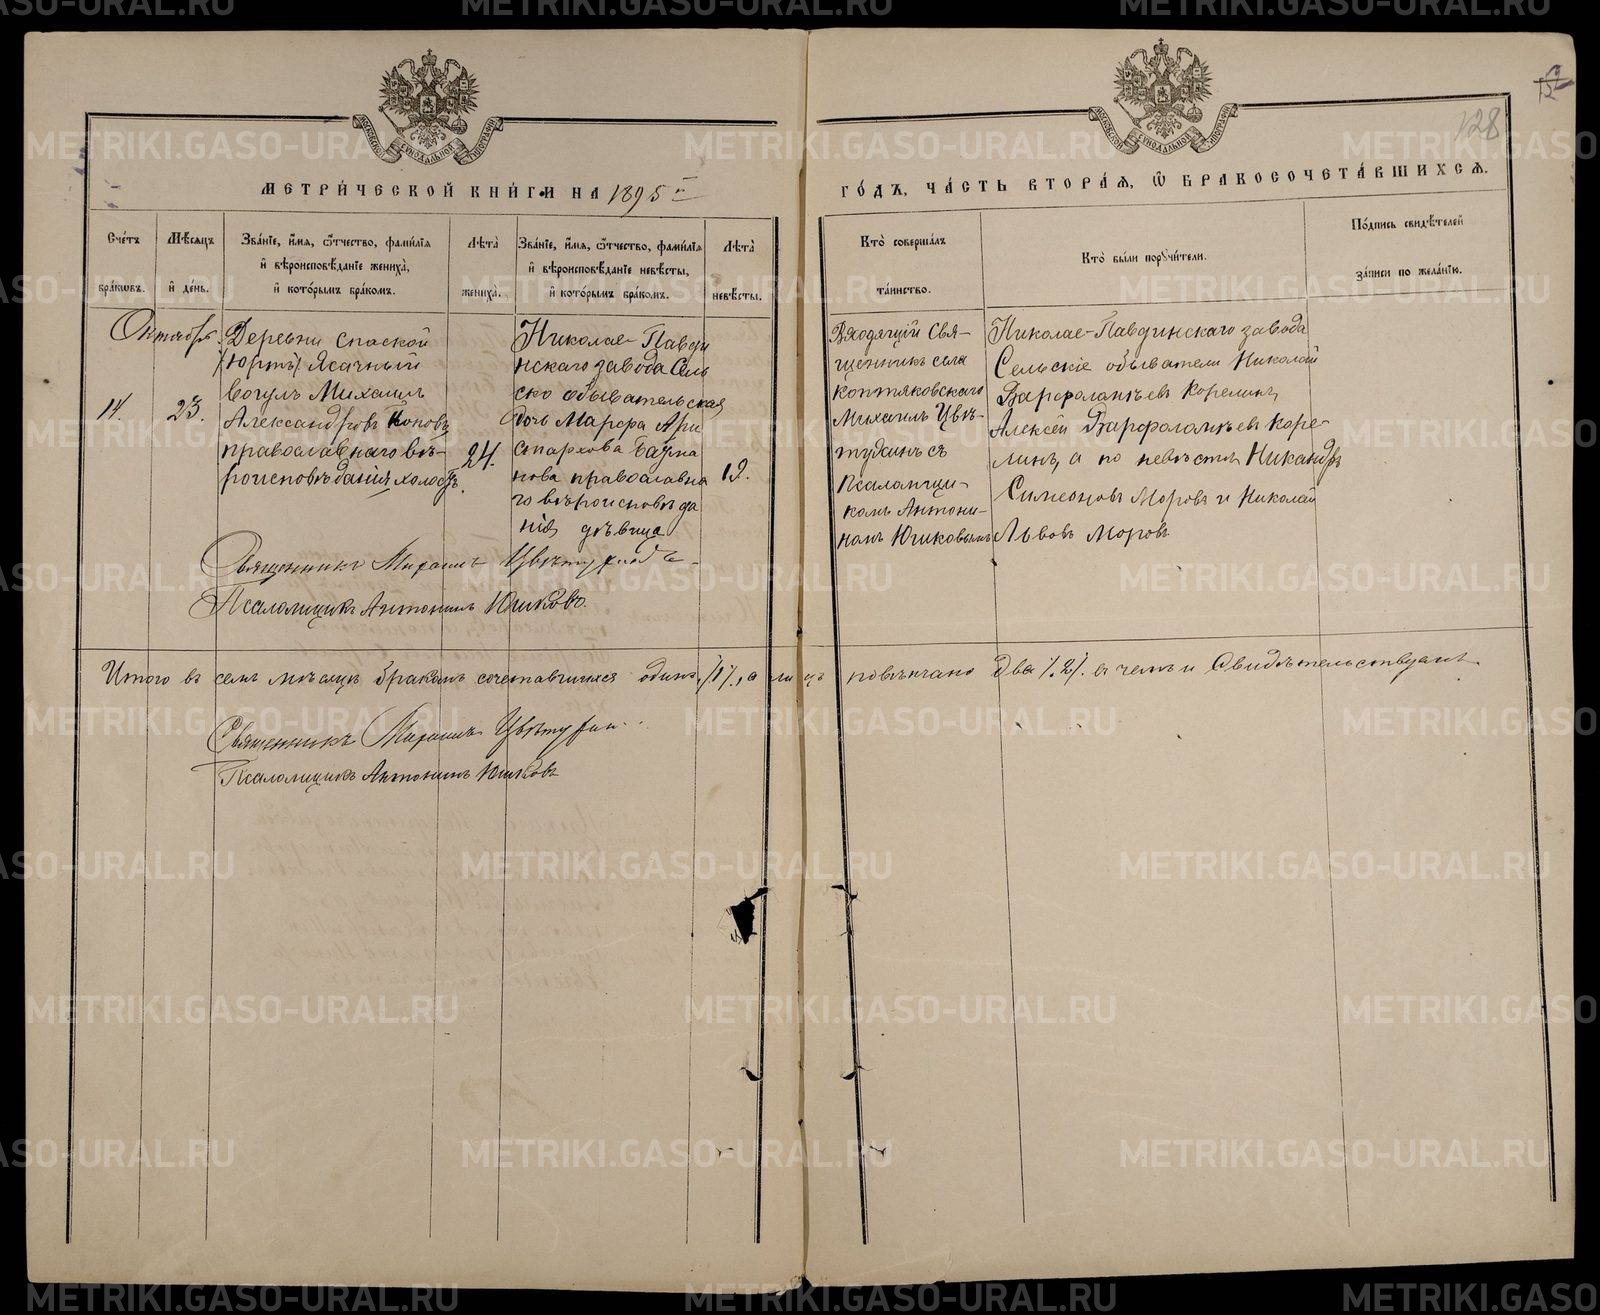 128
МЕТРИЧЕСКОЙ КНИГИ НА 1895 й
ГОДЪ, ЧАСТЬ ВТОРАЯ, Ѡ БРАКОСОЧЕТАВШИХСЯ.
Счетъ браковъ.
Мѣсяцъ и день.
Званіе, имя, ѻтчество, фамилія
и вѣроисповѣданіе жениха,
и которымъ бракомъ.
Лѣта жениха.
Званіе, имя, ѻтчество, фамилія
и вѣроисповѣданіе невѣсты,
и которымъ бракомъ.
Лѣта невѣсты.
Кто совершалъ
таинство.
Кто были поручители.
Подпись свидѣтелей
записи по желанію.
Октябрь
14.
23.
Деревни Спаской
(Юртъ) Ясачный
вогулъ Михаилъ
Александровъ Поповъ
православнаго вѣ-
роисповѣданія холостъ.
24.
Николае-Павди
нскаго завода Сель
ско обывательская
дочь Марфа Ари
стархова
нова православна
го вѣроисповѣда
нія дѣвица
19.
Входящій Свя-
щенникъ села
Коптяковскаго
Михаилъ Цвѣ-
тухинъ съ
Псаломщи-
комъ Антони-
номъ Юшковымъ
Николае-Павдинскаго завода
Сельскіе обыватели Николай
Варфоломѣевъ Корелинъ,
Алексѣй Варфоломѣевъ Коре-
линъ, а по невѣстѣ Никандръ
Симеоновъ Моровъ и Николай
Львовъ Моровъ
Священникъ Михаилъ Цвѣтухинъ
Псаломщикъ Антонинъ Юшковъ.
Итого въ семъ мѣсяцѣ бракомъ сочетавшихся одинъ /1/, а лицъ повѣнчано два /2/. въ чемъ и Свидѣтельствуемъ.
Священникъ Михаилъ Цвѣтухин
Псаломщикъ Антонинъ Юшковъ
METRIKI.GASO-URAL.RU